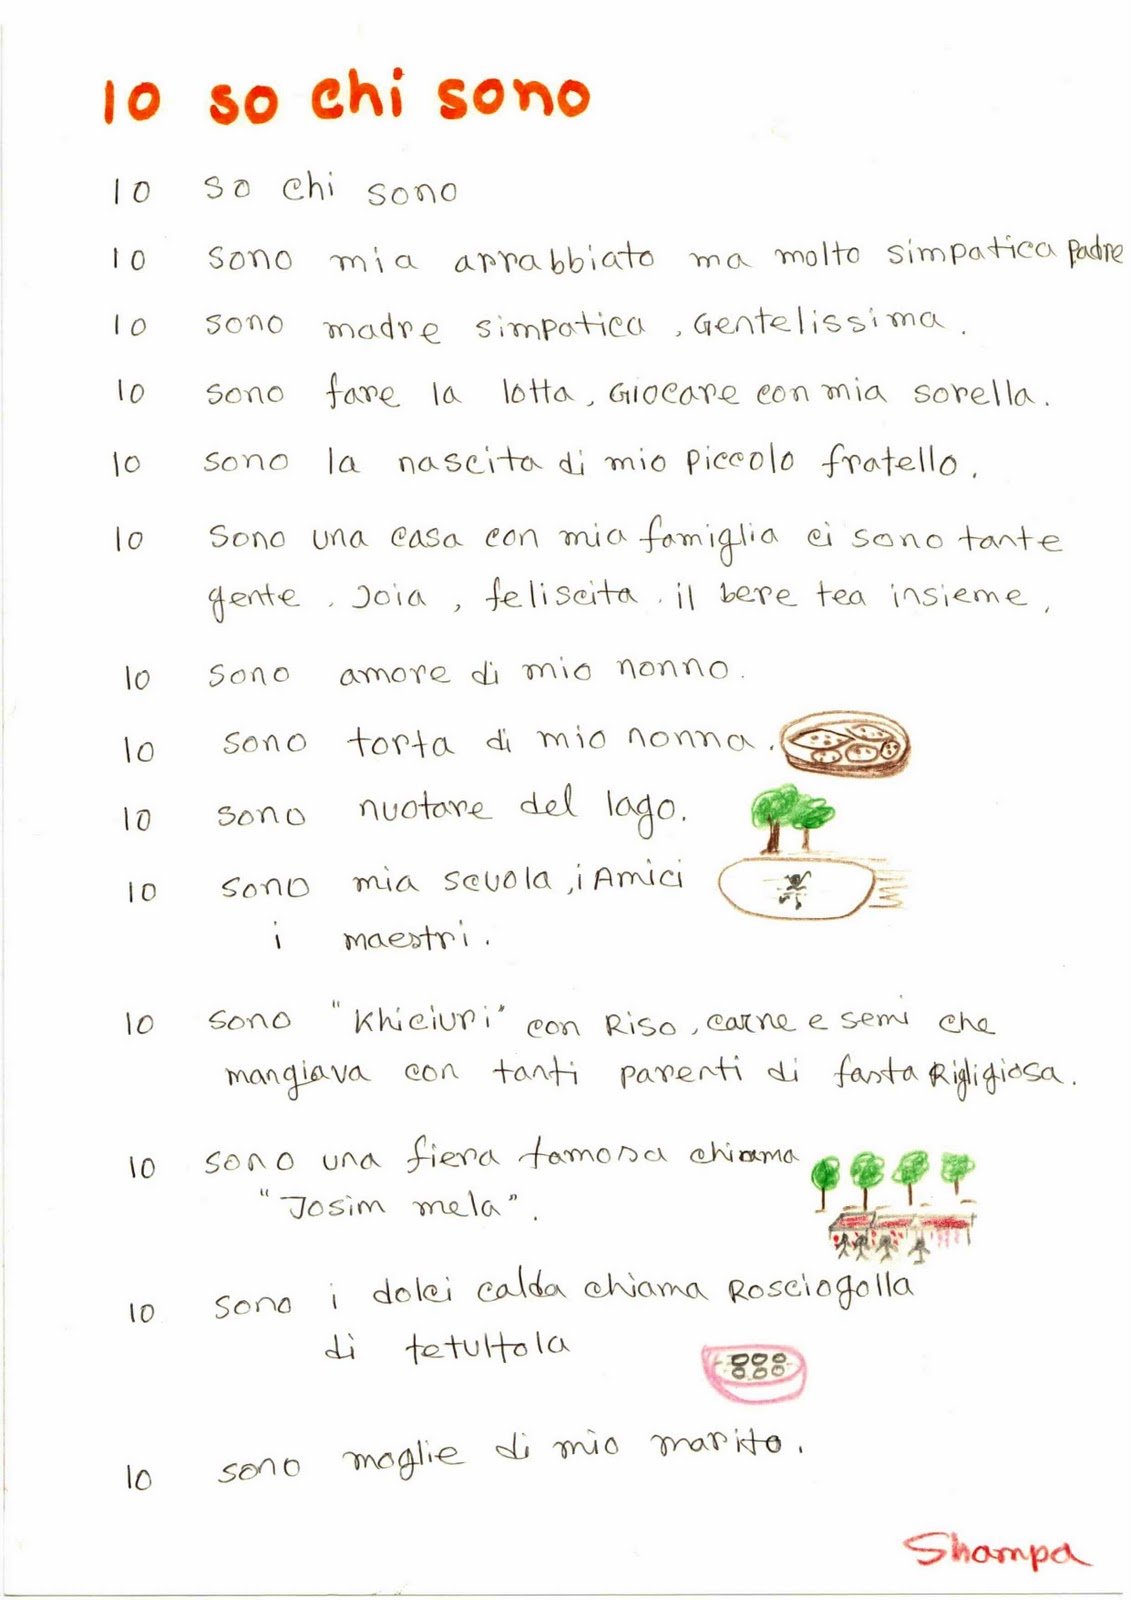 Io so chi sono
Io so chi sono
Io sono mia arrabbiato ma molto simpatica padre
Io sono madre simpatica, Gentelissima.
Io sono fare la lotta, Giocare con mia sorella.
Io sono la nascita di mio piccolo fratello.
Io sono una casa con mia famiglia ci sono tante
gente. Joia, feliscita. il bere tea insieme,
Io sono amore di mio nonno.
Io sono torta di mio nonna.
Io sono nuotare del lago.
Io sono mia scuola, i Amici
i maestri.
Io sono "Khiciuri" con Riso, carne e semi che
mangiava con tanti parenti di fasta Rigligiosa.
Io sono una fiera famosa chiama
"Josim mela".
Io sono i dolci calda chiama Rosciogolla
di tetultola
Io sono moglie di mio marito.
Shampa